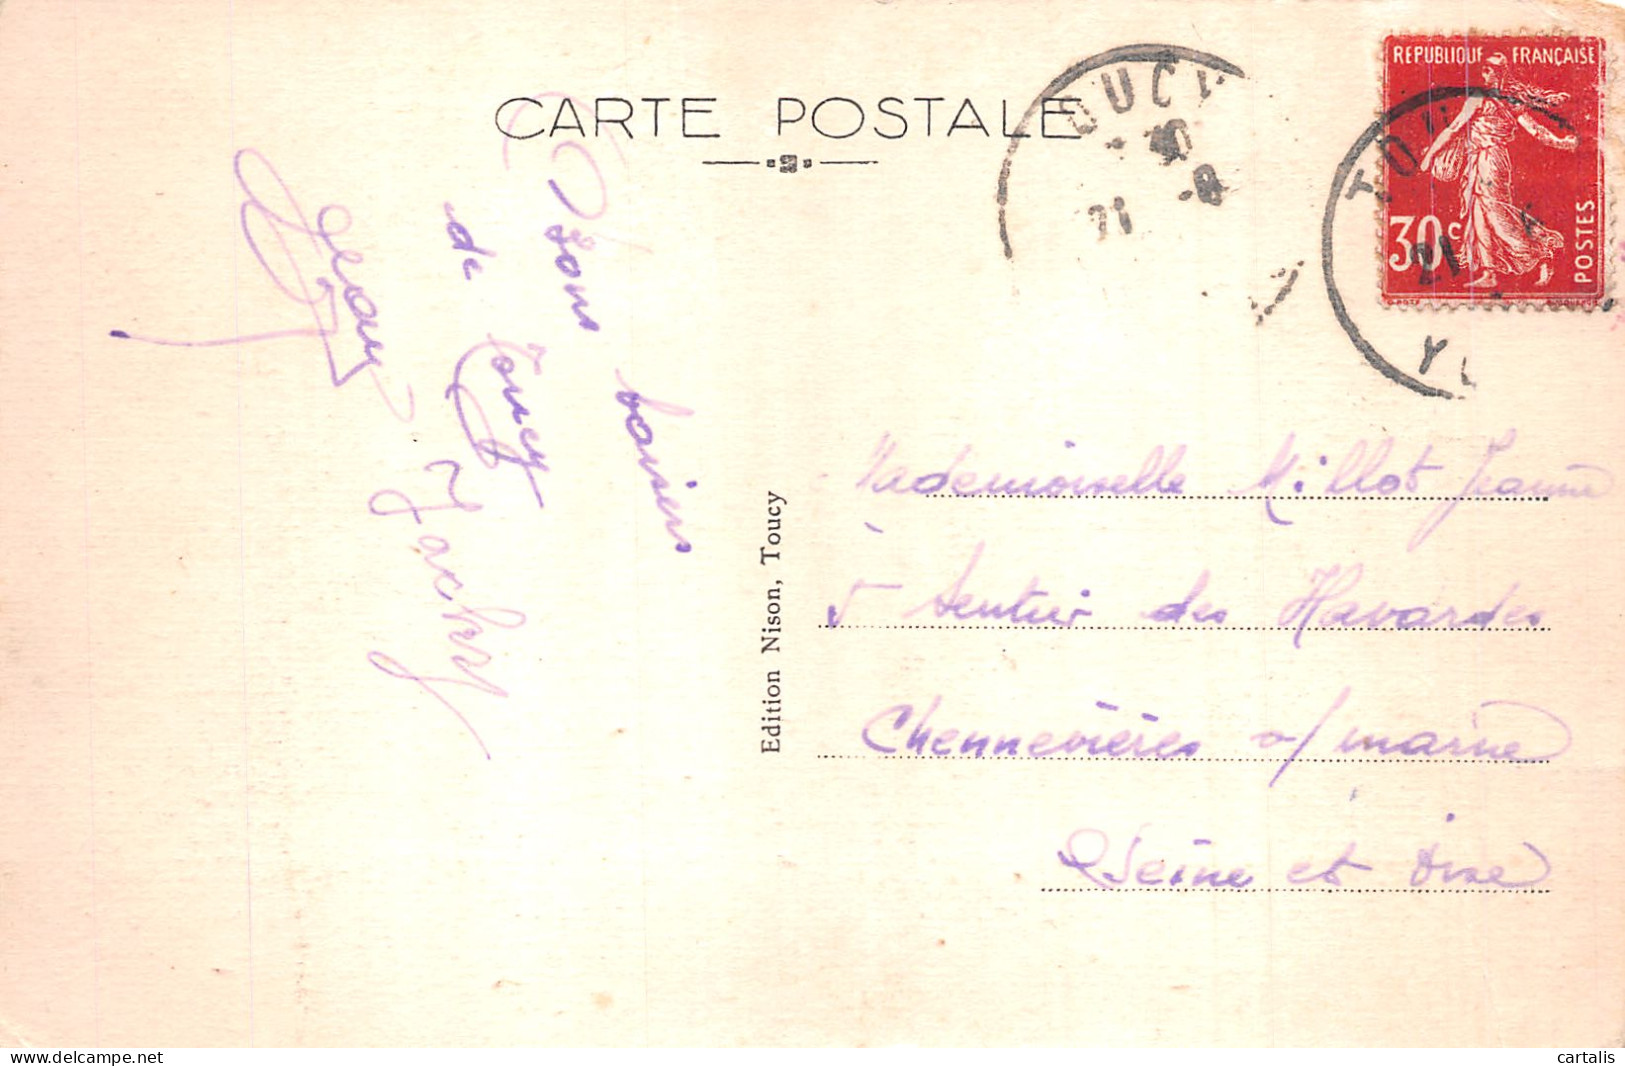 CARTE POSTALE
Bons baisers
de Toucy
Jean Jacky
Edition Nison, Toucy
OUCY
30
21 -8
REPUBLIQUE FRANÇAISE
30c
POSTES
TOU
21
Y
Mademoiselle Millot Jeanne
5 Sentier des Havardes
Chennevières s/ marne
Seine et Oise
cartalis